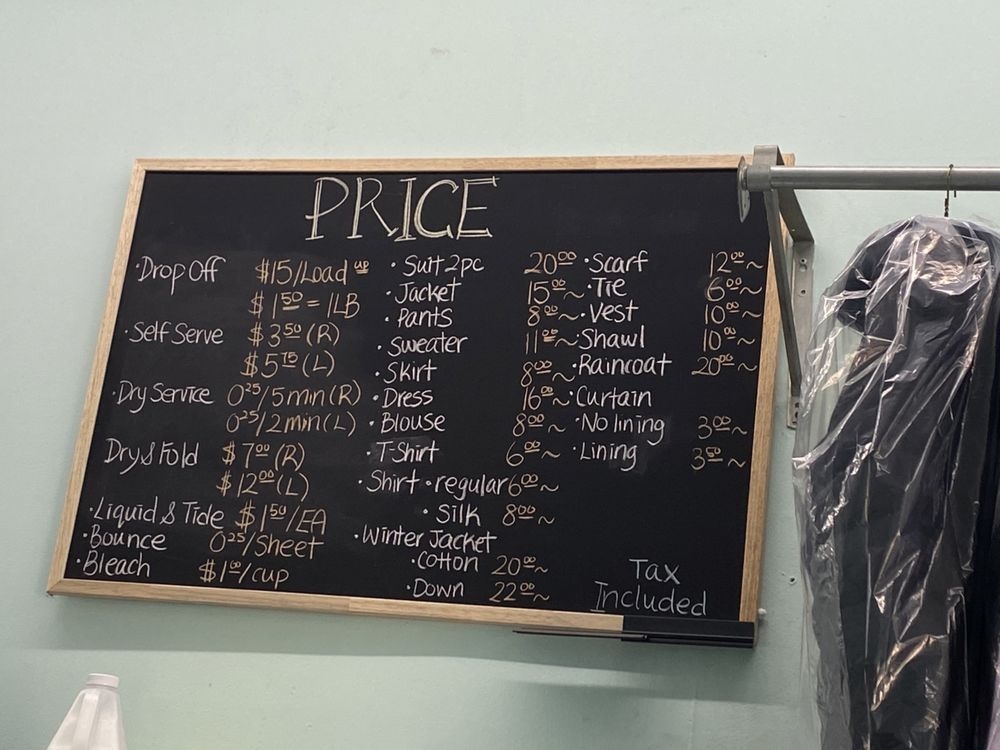 PRICE
·Drop Off $15/Load up
$1.50 = 1LB
·Self Serve $3.50 (R)
$5.75 (L)
·Dry Service 0.25/5min (R)
0.25/2min (L)
Dry & Fold $7.00 (R)
$12.00 (L)
·Liquid & Tide $1.50/EA
·Bounce 0.25/Sheet
·Bleach $1.00/cup
·Suit 2pc 20.00
·Jacket 15.00~
·Pants 8.00~
·Sweater 11.00~
·Skirt 8.00~
·Dress 16.00~
·Blouse 8.00~
·T-Shirt 6.00~
·Shirt ·regular 6.00~
·Silk 8.00~
·Winter Jacket
·Cotton 20.00~
·Down 22.00~
·Scarf 12.00~
·Tie 6.00~
·Vest 10.00~
·Shawl 10.00~
·Raincoat 20.00~
·Curtain
·No lining 3.00~
·Lining 3.50~
Tax
Included